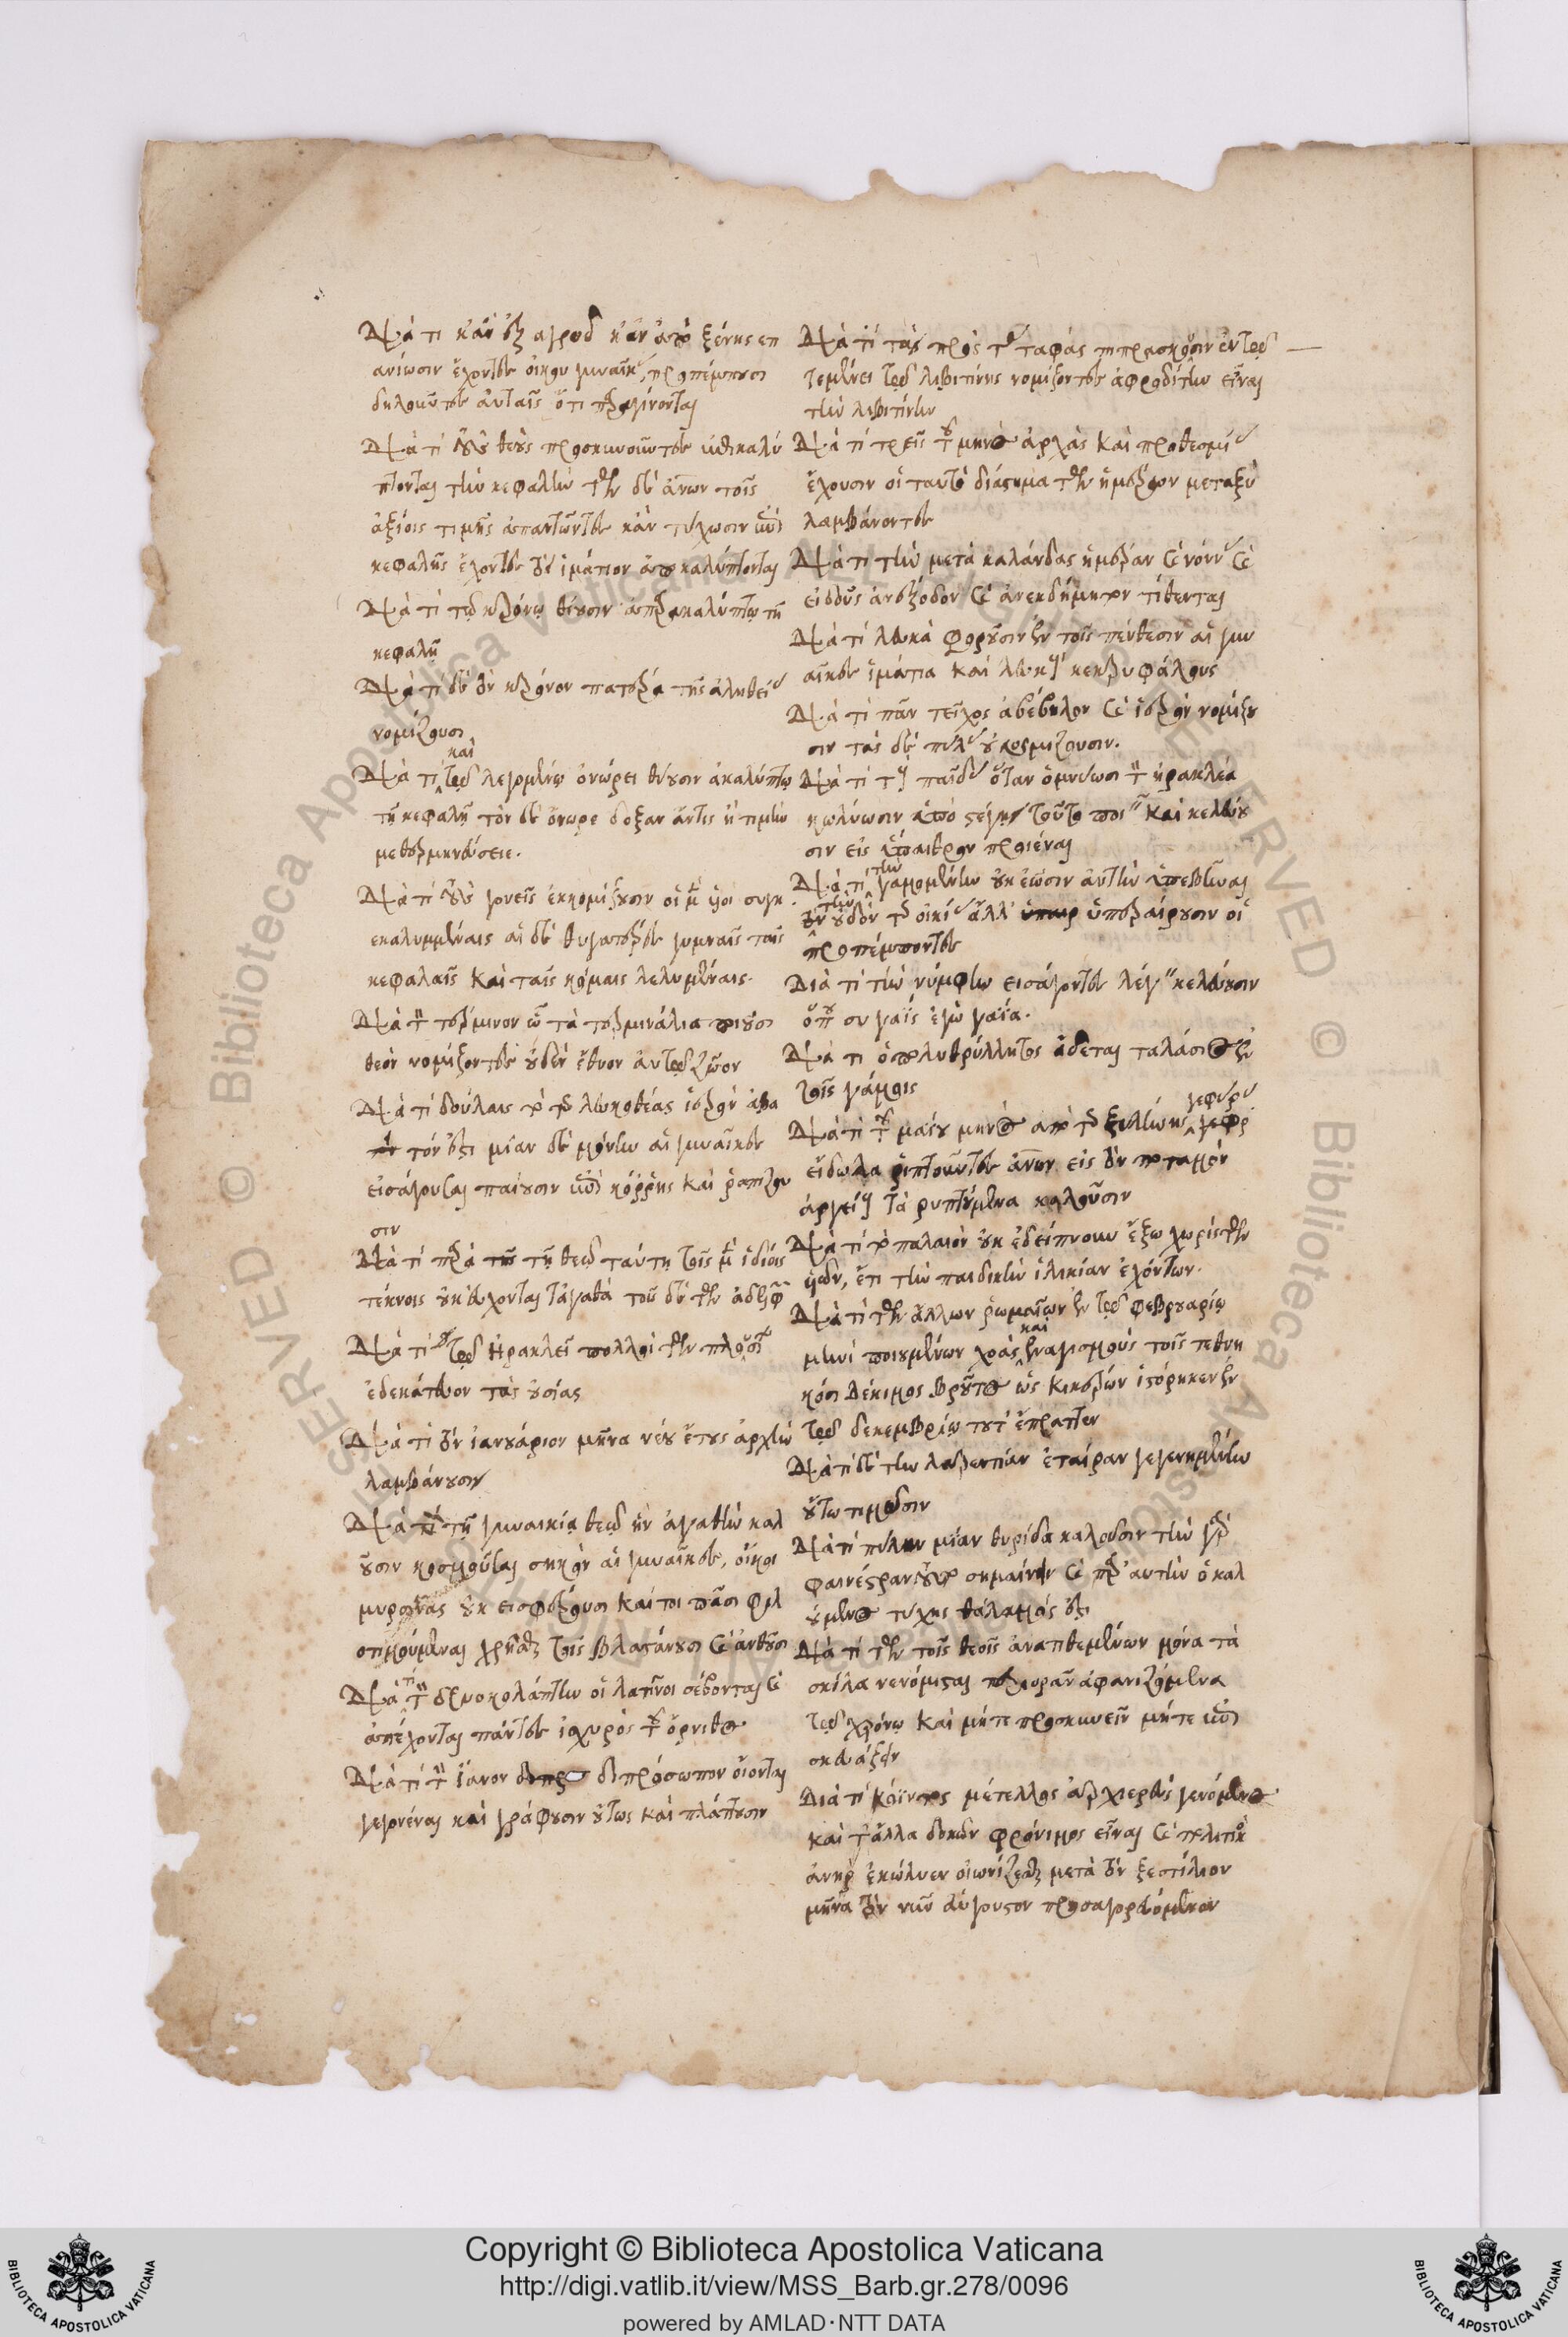 Διὰ τι κἂν ἐξ ἀγροῦ κἂν ἀπὸ ξένης επ
ανίωσιν ἔχοντες οἴκου γυναῖκας, προπέμπουσι
δηλοῦντες ἀυταῖς ὅτι παραγίνονται
Διὰ τί τοὺς θεοὺς προσκυνοῦντες ἐπικαλύ
πτονται τὴν κεφαλὴν τῶν δὲ ἀνων τοῖς
ἀξίοις τιμῆς ἀπαντῶντες κἂν τύχωσιν ἐπὶ
κεφαλῆς ἔχοντες τὸ ἱμάτιον ἀποκαλύπτονται
Διὰ τί τῷ κρόνῳ θύουσιν ἀπαρακαλύπτῳ τῇ
κεφαλῇ
Διὰ τί δὲ τὸν κρόνον πατέρα τῆς ἀληθείας
νομίζουσι
Διὰ τί καὶ τῷ λεγομένῳ ὀνώρει θύουσιν ἀκαλύπτῳ
τῇ κεφαλῇ τὸν δὲ ὄνωρε δόξαν ἄντις ἢ τιμὴν
μεθερμηνεύσειε.
Διὰ τί τοὺς γονεῖς ἐκκομίζουσιν οἱ μὲν υἱοι συγκ
εκαλυμμέναις αἱ δὲ θυγατέρες γυμναῖς ταῖς
κεφαλαῖς καὶ ταῖς κόμαις λελυμέναις.
Διὰ τί τὸν τέρμινον ᾧ τὰ τερμινάλια ποιοῦσι
θεὸν νομίζοντες οὐδὲν ἔθυον ἀυτῷ ζῶον
Διὰ τί δούλαις τὸ τῆς λευκοθέας ἱερὸν ἄβα
τόν ἐστι μίαν δὲ μόνην αἱ γυναῖκες
εἰσάγουσαι παίουσιν ἐπὶ κόρρης καὶ ῥαπίζου
σιν
Διὰ τί παρὰ τῇ θεῷ ταύτῃ τοῖς μὲν ἰδίοις
τέκνοις οὐκ ἐύχονται τἀγαθὰ τοῦ δὲ τῶν ἀδελφῶν
Διὰ τί τῷ ἡρακλεῖ πολλοὶ τῶν πλουσίων
ἐδεκάτευον τὰς οὐσίας
Διὰ τί τὸν ἰανουάριον μῆνα νέου ἔτους ἀρχὴν
λαμβάνουσιν
Διὰ τί τῇ γυναικίᾳ θεῷ ἣν ἀγαθὴν καλ
οῦσιν κοσμοῦσαι σηκὸν αἱ γυναῖκες, οἴκοι
μυρσίνας οὐκ εισφέρουσι καίτοι πᾶσι φιλ
οτιμούμεναι χρῆσθαι τοῖς βλαστάνουσι καὶ ἀνθοῦσι
Διὰ τί τὸν δρυοκολάπτην οἱ λατῖνοι σέβονται καὶ
ἀπέχονται πάντες ἰσχυρῶς τοῦ ὄρνιθος
Διὰ τί τὸν ἴανον διπρόσωπον οἴονται
γεγονέναι καὶ γράφουσιν οὕτως καὶ πλάττουσιν
Διὰ τί τὰ πρὸς τὰς ταφάς πιπράσκουσιν ἐν τῷ
τεμένει τῷ λιβιτίνης νομίζοντες ἀφροδίτην εἶναι
τὴν λιβιτίνην
Διὰ τί τρεῖς τοῦ μηνὸς ἀρχὰς καὶ προθεσμίας
ἔχουσιν οὐ ταυτὸ διάστημα τῶν ἡμερῶν μεταξὺ
λαμβάνοντες
Διὰ τί τὴν μετὰ καλάνδας ἡμέραν καὶ νόννας καὶ
εἰδοὺς ἀνέξοδον καὶ ἀνεκδήμητον τίθενται
Διὰ τί λευκὰ φοροῦσιν ἐν τοῖς πένθεσιν αἱ γυν
αῖκες ἱμάτια καὶ λευκοὺς κεκρυφάλους
Διὰ τί πᾶν τεῖχος ἀβέβηλον καὶ ἱερὸν νομίζου
σιν τὰς δὲ πύλας οὐ νομίζουσιν.
Διὰ τί τοὺς παῖδας ὅταν ὀμνύωσι τὸν ἡρακλέα
κωλύωσιν ὑπὸ στέγης τοῦτο ποιεῖν καὶ κελεύου
σιν εἰς ὕπαιθρον προιέναι
Διὰ τί τὴν γαμουμένην οὐκ ἐῶσιν ἀυτὴν ὑπερβῆναι
τὸν οὐδὸν τῆς οἰκίας ἀλλ' ὑπεραίρουσιν οἱ
προπέμποντες
Διὰ τί τὴν νύμφην εισάγοντες λέγειν κελεύουσιν
ὅπου συ γαΐς ἐγὼ γαΐα.
Διὰ τι ὁ πολυθρύλλητος ἄδεται ταλάσιος ἐν
τοῖς γάμοις
Διὰ τί τοῦ μαΐου μηνὸς ἀπὸ τῆς ξυλίνης γεφύρας
εἴδωλα ῥιπτοῦντες ἀνων εἰς τὸν ποταμὸν
ἀργείους τὰ ριπτούμενα καλοῦσιν
Διὰ τί τὸ παλαιὸν οὐκ ἐδείπνουν ἔξω χωρὶς τῶν
υἱῶν, ἔτι τὴν παιδικὴν ἡλικίαν ἐχόντων.
Διὰ τί τῶν ἄλλων ῥωμαίων ἐν τῷ φεβρουαρίῳ
μηνὶ ποιουμένων χοὰς καὶ ἐναγισμοὺς τοῖς τεθνη
κόσι Δέκιμος βροῦτος ὡς κικέρων ἱστόρηκεν ἐν
τῷ δεκεμβρίῳ τοῦτ' ἔπραττεν
Διὰ τί δὲ τὴν λαρεντίαν ἑταίραν γεγενημένην
οὕτω τιμῶσιν
Διὰ τί πύλην μίαν θυρίδα καλοῦσιν τὴν γὰρ
φαινέστραν τοῦτο σημαίνειν καὶ παρ' αυτὴν ὁ καλ
ούμενος τύχης θάλαμός ἐστι
Διὰ τί τῶν τοῖς θεοῖς ἀνατιθεμένων μόνα τὰ
σκῦλα νενόμισται περιορᾶν ἀφανιζόμενα
τῷ χρόνῳ καὶ μήτε προσκυνεῖν μήτε ἐπι
σκευάζειν
Διὰ τί κόϊντος μέτελλος ἀρχιερεὺς γενόμενος
καὶ τἆλλα δοκῶν φρόνιμος εἶναι καὶ πολιτικὸς
ἀνὴρ ἐκώλυεν οἰωνίζεσθαι μετὰ τὸν ξεστίλιον
μῆνα τὸν νῦν ἀύγουστον προσαγορευόμενον
Copyright © Biblioteca Apostolica Vaticana
http://digi.vatlib.it/view/MSS_Barb.gr.278/0096
powered by AMLAD·NTT DATA